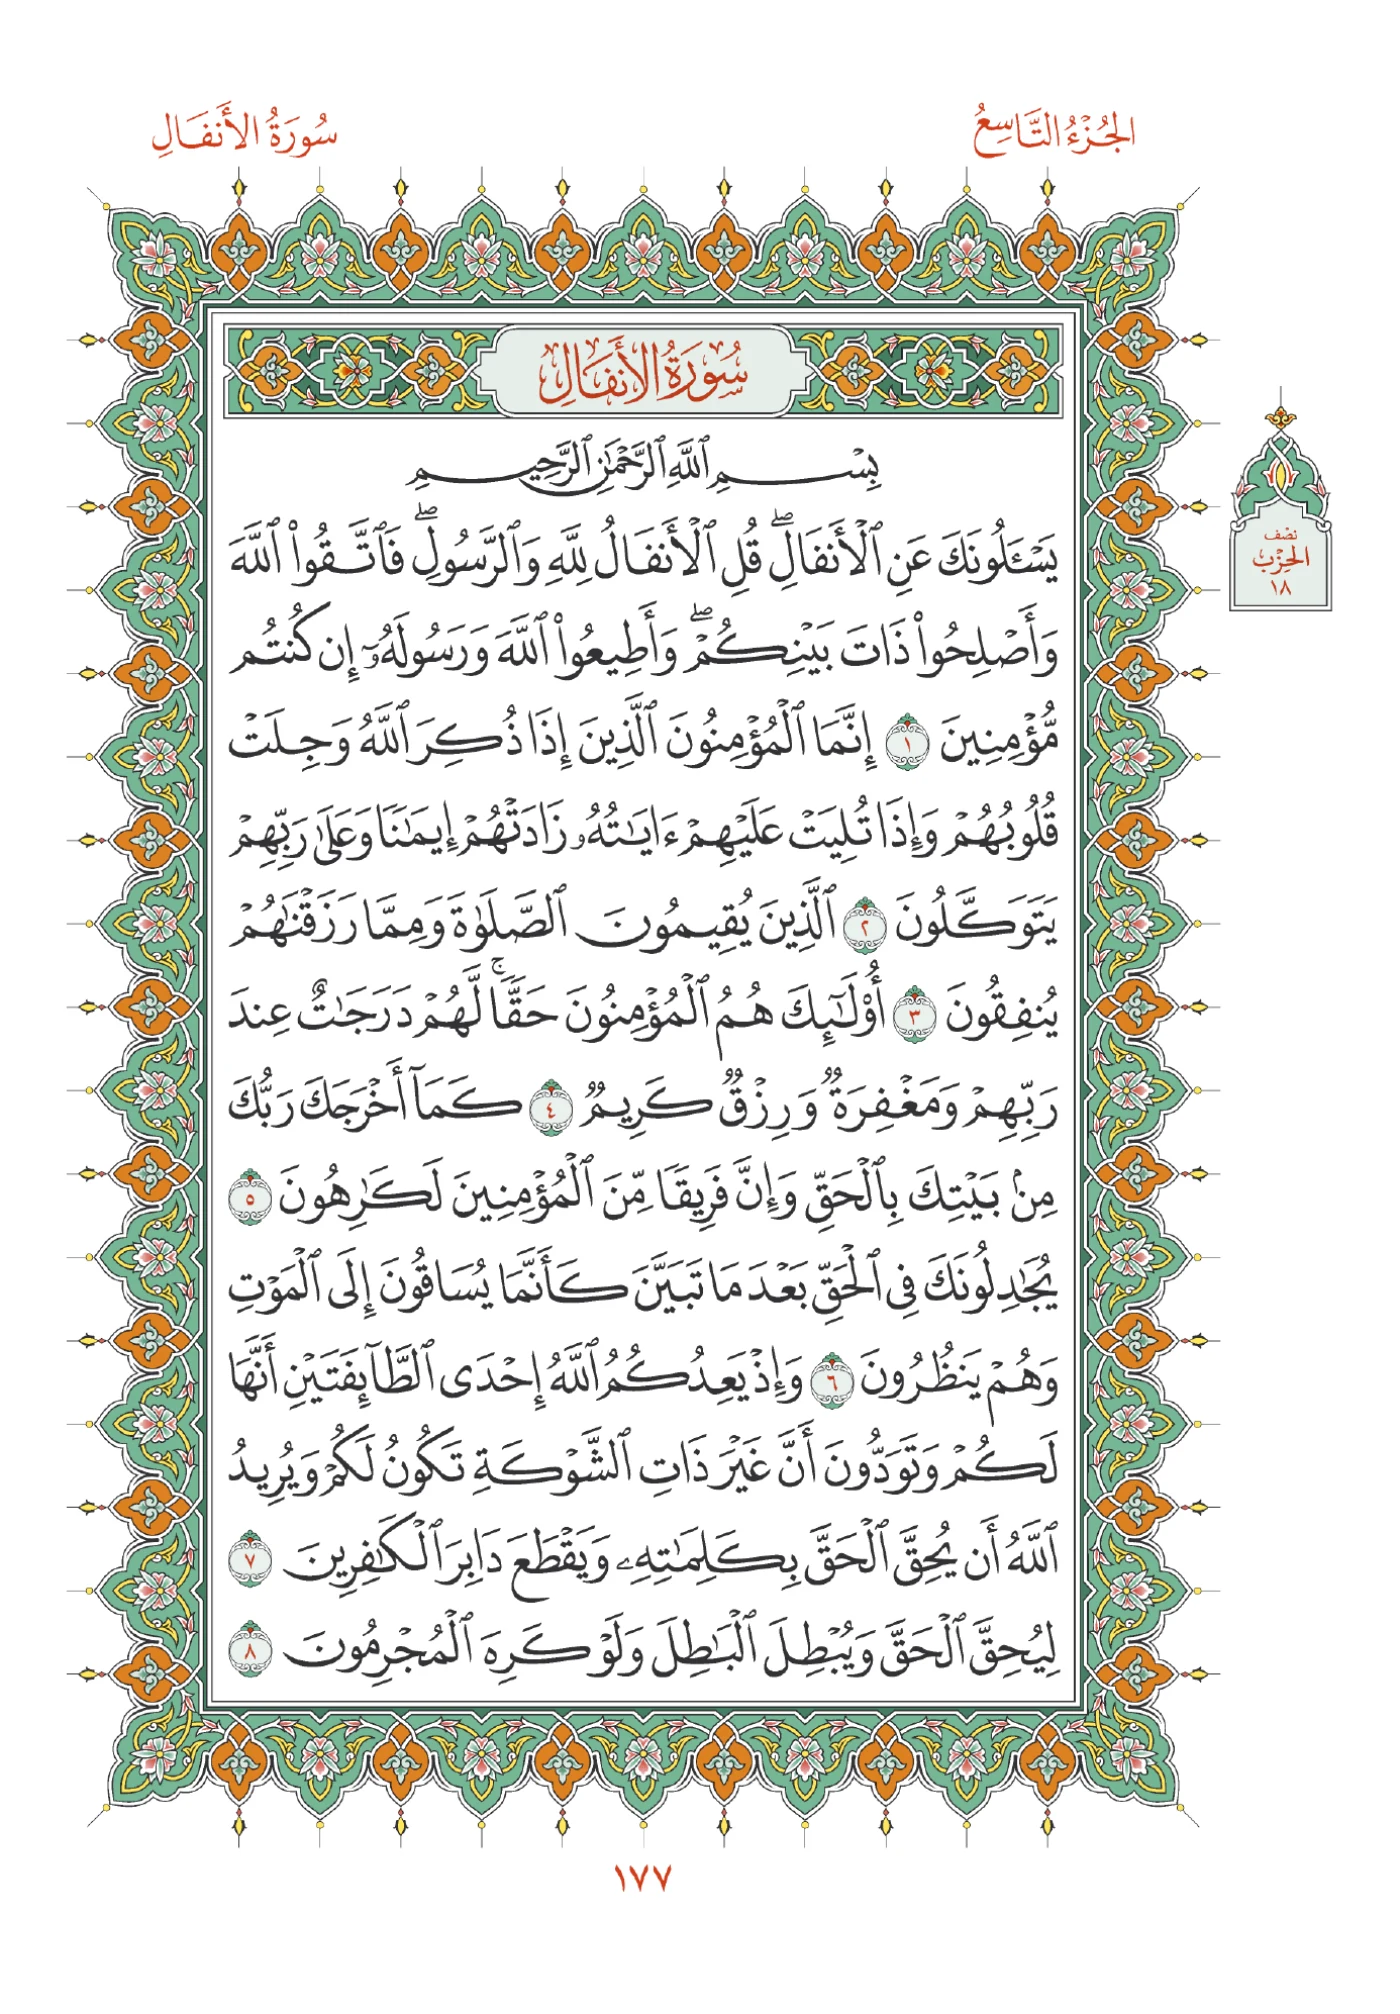 الجُزْءُ التَّاسِعُ
سُورَةُ الأَنفَالِ
سُورَةُ الأَنفَالِ
بِسْمِ ٱللَّهِ ٱلرَّحْمَٰنِ ٱلرَّحِيمِ
يَسْـَٔلُونَكَ عَنِ ٱلْأَنفَالِۖ قُلِ ٱلْأَنفَالُ لِلَّهِ وَٱلرَّسُولِۖ فَٱتَّقُوا۟ ٱللَّهَ
وَأَصْلِحُوا۟ ذَاتَ بَيْنِكُمْۖ وَأَطِيعُوا۟ ٱللَّهَ وَرَسُولَهُۥٓ إِن كُنتُم
مُّؤْمِنِينَ ١ إِنَّمَا ٱلْمُؤْمِنُونَ ٱلَّذِينَ إِذَا ذُكِرَ ٱللَّهُ وَجِلَتْ
قُلُوبُهُمْ وَإِذَا تُلِيَتْ عَلَيْهِمْ ءَايَٰتُهُۥ زَادَتْهُمْ إِيمَٰنًا وَعَلَىٰ رَبِّهِمْ
يَتَوَكَّلُونَ ٢ ٱلَّذِينَ يُقِيمُونَ ٱلصَّلَوٰةَ وَمِمَّا رَزَقْنَٰهُمْ
يُنفِقُونَ ٣ أُو۟لَٰٓئِكَ هُمُ ٱلْمُؤْمِنُونَ حَقًّاۚ لَّهُمْ دَرَجَٰتٌ عِندَ
رَبِّهِمْ وَمَغْفِرَةٌ وَرِزْقٌ كَرِيمٌ ٤ كَمَآ أَخْرَجَكَ رَبُّكَ
مِنۢ بَيْتِكَ بِٱلْحَقِّ وَإِنَّ فَرِيقًا مِّنَ ٱلْمُؤْمِنِينَ لَكَٰرِهُونَ ٥
يُجَٰدِلُونَكَ فِى ٱلْحَقِّ بَعْدَ مَا تَبَيَّنَ كَأَنَّمَا يُسَاقُونَ إِلَى ٱلْمَوْتِ
وَهُمْ يَنظُرُونَ ٦ وَإِذْ يَعِدُكُمُ ٱللَّهُ إِحْدَى ٱلطَّآئِفَتَيْنِ أَنَّهَا
لَكُمْ وَتَوَدُّونَ أَنَّ غَيْرَ ذَاتِ ٱلشَّوْكَةِ تَكُونُ لَكُمْ وَيُرِيدُ
ٱللَّهُ أَن يُحِقَّ ٱلْحَقَّ بِكَلِمَٰتِهِۦ وَيَقْطَعَ دَابِرَ ٱلْكَٰفِرِينَ ٧
لِيُحِقَّ ٱلْحَقَّ وَيُبْطِلَ ٱلْبَٰطِلَ وَلَوْ كَرِهَ ٱلْمُجْرِمُونَ ٨
نصْف
الحِزْب
١٨
١٧٧